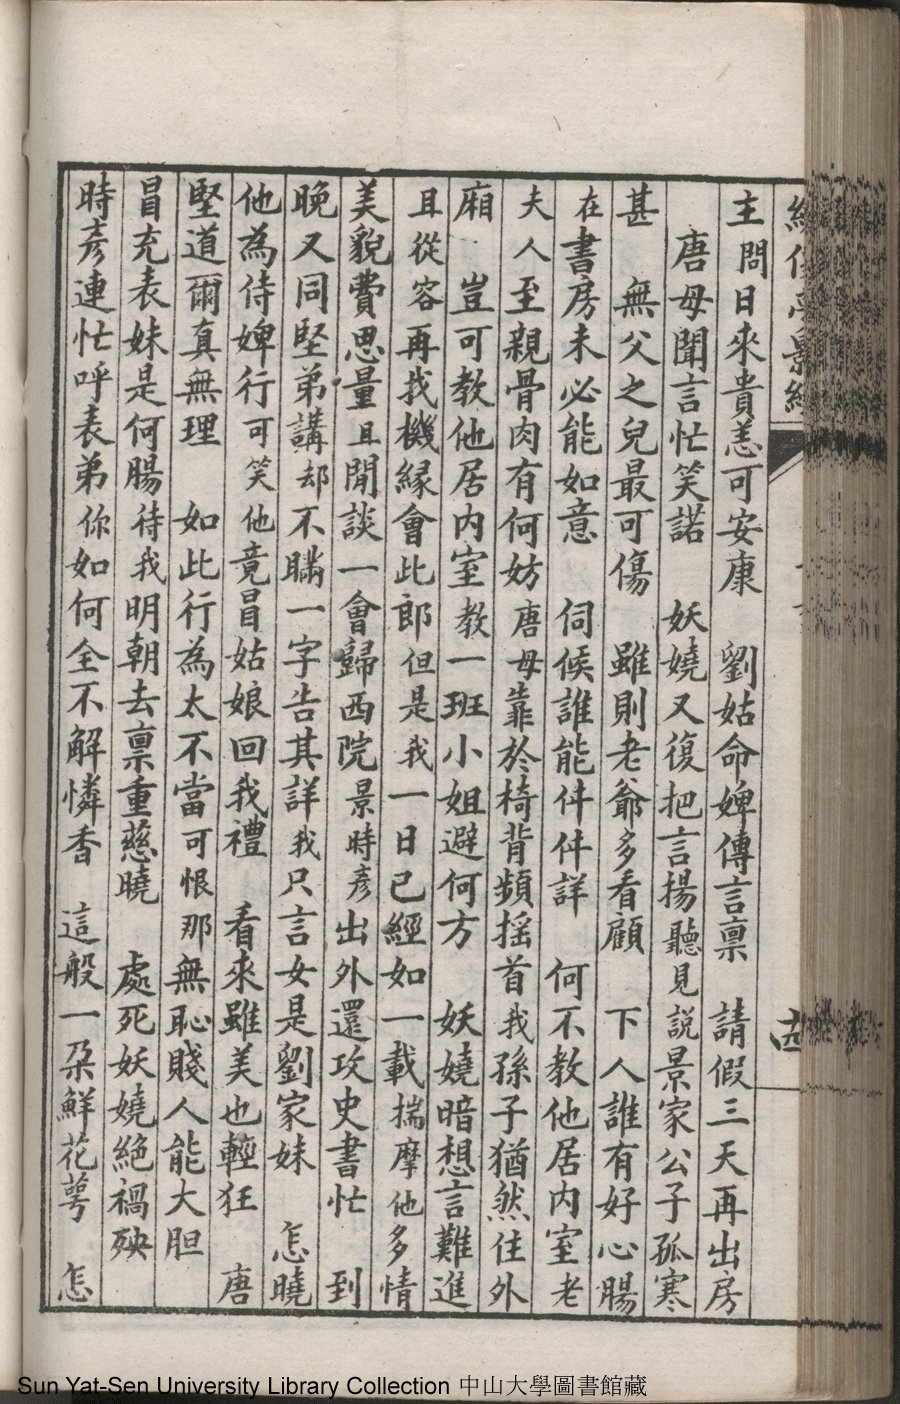 主問日來貴恙可安康　劉姑命婢傳言禀　請假三天再出房
唐母聞言忙笑諾　妖嬈又復把言揚聽見説景家公子孤寒
甚　無父之兒最可傷　雖則老爺多看顧　下人誰有好心腸
在書房未必能如意　伺候誰能件件詳　何不教他居内室老
夫人至親骨肉有何妨唐母靠於椅背頻揺首我孫子猶然住外
廂　豈可教他居内室教一班小姐避何方　妖嬈暗想言難進
且從容再我機緣會此郎但是我一日已經如一載揣摩他多情
美貌費思量且閒談一會歸西院景時彥出外還攻史書忙　到
晚又同堅弟講却不瞞一字告其詳我只言女是劉家妹　怎曉
他為侍婢行可笑他竟冒姑娘回我禮　看來雖美也輕狂　唐
堅道爾真無理　如此行為太不當可恨那無恥賤人能大胆
冒充表妹是何腸待我明朝去禀重慈曉　處死妖嬈絕禍殃
時彥連忙呼表弟你如何全不解憐香　這般一朶鮮花萼　怎
Sun Yat-Sen University Library Collection 中山大學圖書館藏